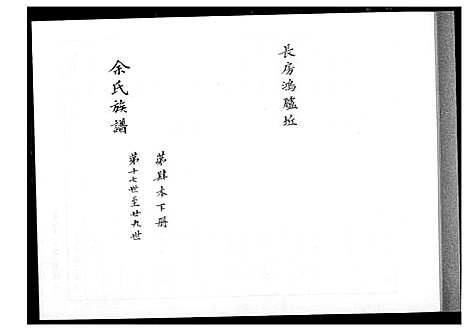 長房鴻臚坵
余氏族譜
第肆本下册
第十七世至廿九世